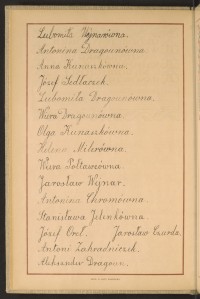 Ludomiła Wojnarówna.
Antonina Dragounówna.
Anna Kunaszkówna.
Józef Sedlaczek.
Ludomiła Dragounówna.
Wiera Dragounówna.
Olga Kunaszkówna.
Helena Melerówna.
Wiera Półtawcówna.
Jarosław Wojnar.
Antonina Chromówna.
Stanisława Jelenkówna.
Józef Orel. Jarosław Czurda.
Antoni Zahradniczek.
Aleksander Dragoun.